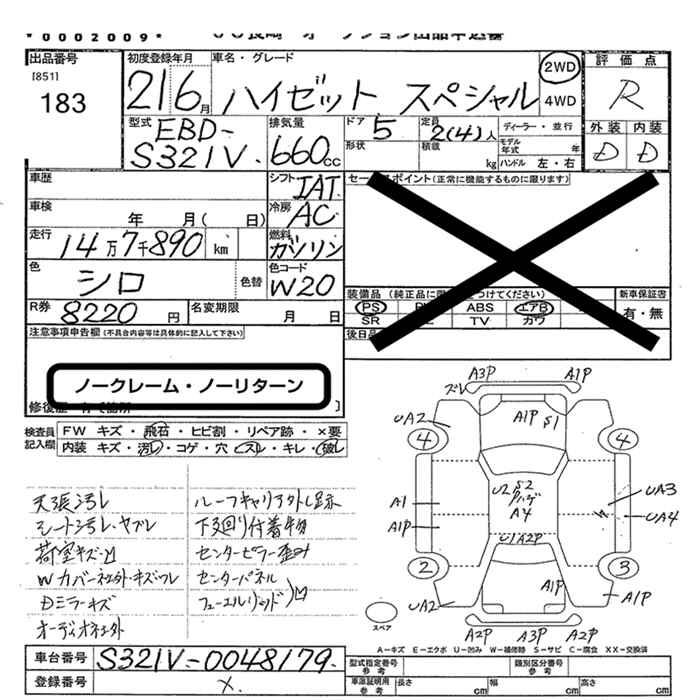 *0002009*
出品番号
[851]
183
初度登録年月
21 6月
車名・グレード
ハイゼット スペシャル
2WD
4WD
評価点
R
外装 内装
D D
型式 EBD-
S321V.
排気量
660cc
ドア 5
形状
定員
2(4)人
積載
kg
ディーラー・並行
モデル年式 年
ハンドル 左・右
車歴
シフト IAT
車検
年 月( 日)
冷房 AC
走行
14万7千890 km
燃料
ガソリン
色
シロ
色替
色コード
W20
R券
8220円
名変期限
月 日
セールスポイント(正常に機能するものに限ります)
装備品
PS
ABS
エアB
SR
TV
カワ
新車保証書
有・無
注意事項申告欄(不具合内容等は具体的に記入して下さい)
ノークレーム・ノーリターン
検査員記入欄
FW キズ・飛石・ヒビ割・リペア跡・×要
内装 キズ・汚レ・コゲ・穴・スレ・キレ・破レ
天張汚レ
シート汚レ・ヤブレ
荷室キズ・凹
Wカバー社外・キズ・スレ
Dミラーキズ
オーディオ社外
ルーフキャリア外し跡
下廻り付着物
センターピラー歪み
センターパネル
フューエルリッド
凹
A3P
A1P
ズレ
UA2
A1P S1
4
4
A1
A1P
U2 S2
ハゲ
A4
UA3
UA4
U1A2P
2
3
UA2
A1P
A1P
A2P
A3P
A2P
スペア
A-キズ E-エクボ U-凹み W-補修跡 S-サビ C-腐食 XX-交換済
車台番号
S321V-0048179.
登録番号
×.
型式指定番号
参考
類別区分番号
参考
車庫証明用
参考
長さ
cm
幅
cm
高さ
cm